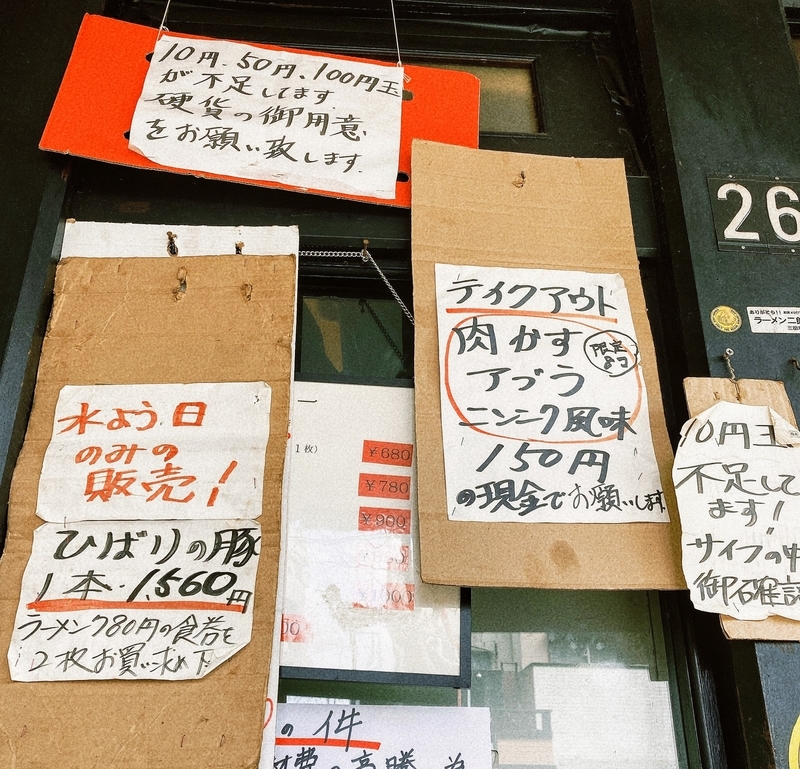 10円、50円、100円玉
が不足してます。
硬貨の御用意
をお願い致します。
テイクアウト
肉かす
限定
8コ
アブラ
ニンニク風味
150円
の現金でお願いします
水よう日
のみの
販売!
ひばりの豚
1本・1,560円
ラーメン780円の食券を
2枚お買い求め下
1枚)
¥680
¥780
¥900
26
ありがとう!!
ラーメン二郎
10円玉
不足して
ます!
サイフの中
御確認
の件
材費の高騰、為